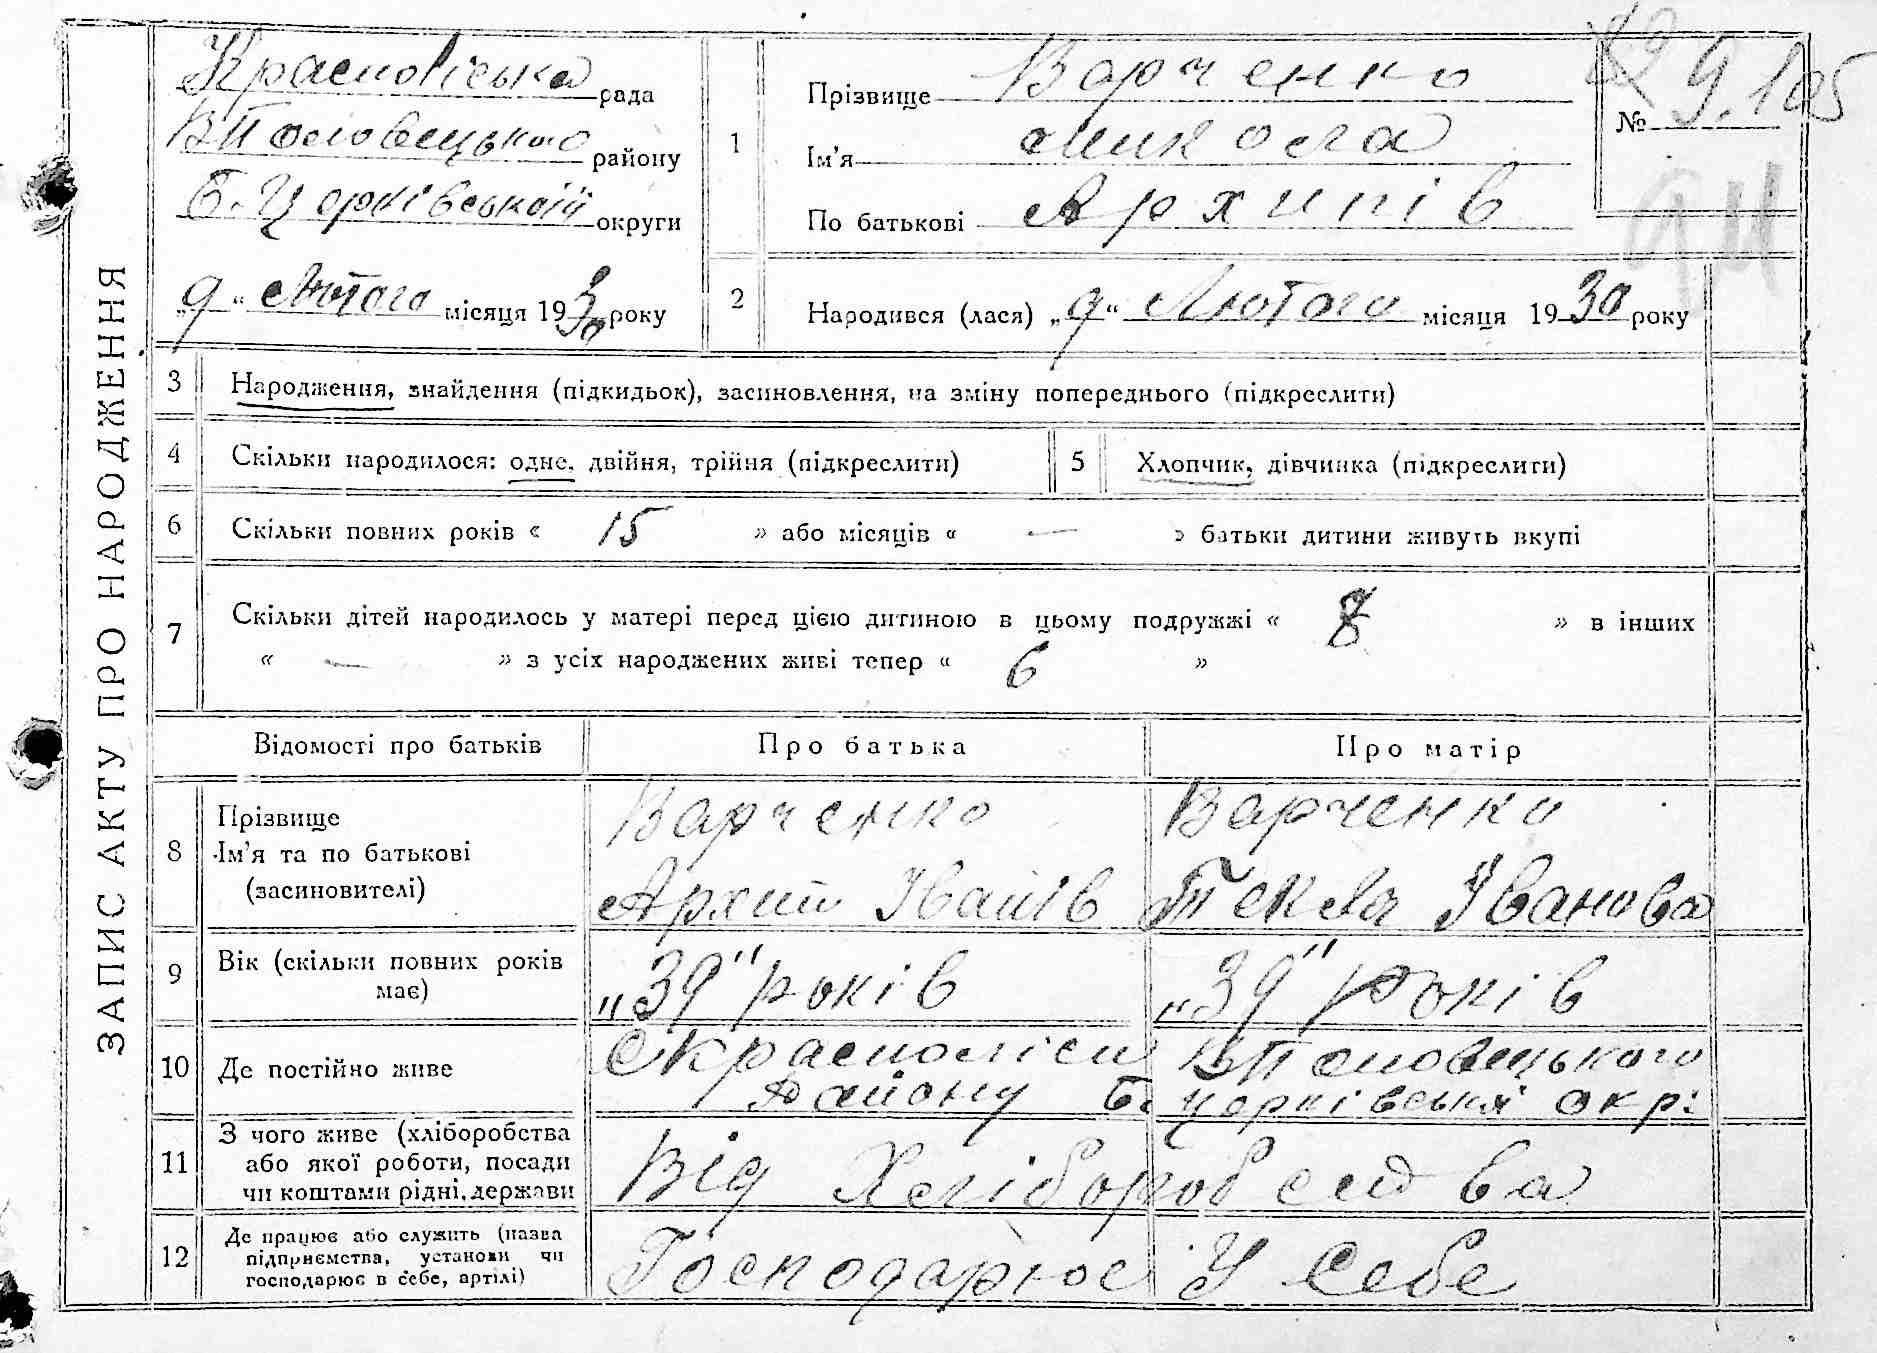 ЗАПИС АКТУ ПРО НАРОДЖЕННЯ
Красноліська рада
ВПоловецького району
Б.Церківської округи
„9“ Лютого місяця 1930 року
1
Прізвище Варченко
Ім’я Микола
По батькові Архипів
№ 9.105
2
Народився (лася) „9“ Лютого місяця 1930 року
3 Народження, знайдення (підкидьок), засиновлення, на зміну попереднього (підкреслити)
4 Скільки народилося: одне, двійня, трійня (підкреслити)
5 Хлопчик, дівчинка (підкреслити)
6 Скільки повних років « 15 » або місяців « — » батьки дитини живуть вкупі
7 Скільки дітей народилось у матері перед цією дитиною в цьому подружжі « 8 » в інших
« — » з усіх народжених живі тепер « 6 »
Відомості про батьків Про батька Про матір
8 Прізвище
Ім’я та по батькові
(засиновителі)
Варченко
Архип Іванів
Варченко
Текля Іванова
9 Вік (скільки повних років
має)
„39" років
„39" років
10 Де постійно живе
С Красноліси ВПоловецького
Району Б. Церківської окр:
11 З чого живе (хліборобства
або якої роботи, посади
чи коштами рідні, держави
Від Хліборобства
12 Де працює або служить (назва
підприємства, установи чи
господарює в себе, артілі)
Господарює У себе